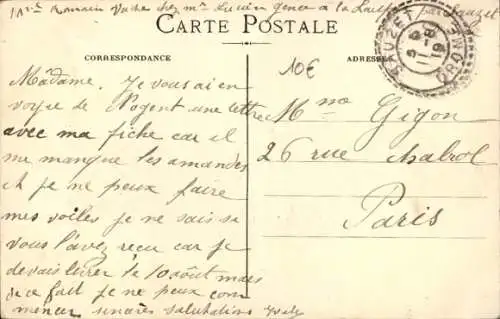 Mme Romain Vache chez Mr Lucien Genève à la Laupie par Sauzet
CARTE POSTALE
CORRESPONDANCE
ADRESSE
SAUZET
DROME
10€
Madame. Je vous ai en
voyée de Nogent une lettre
avec ma fiche car il
me manque les amandes
et je ne peux faire
mes voiles je ne sais si
vous l'avez reçu car je
devais livrer le 10 août mais
de ce fait je ne peux com
mencer sincères salutations
Mme Gigon
26 rue chabrol
Paris